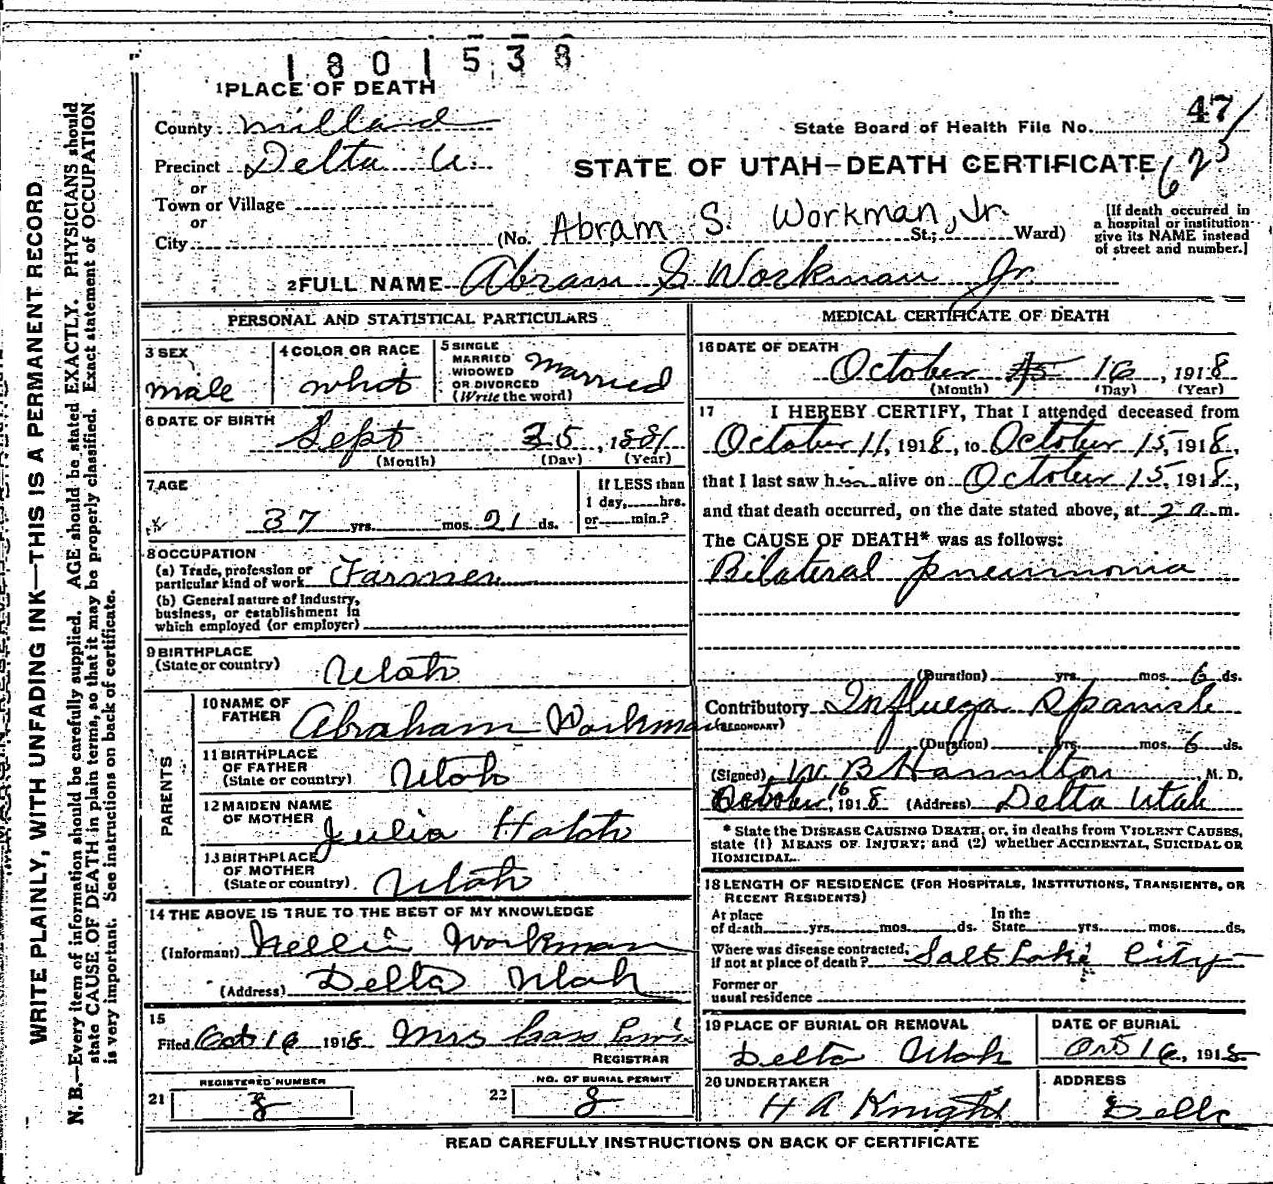 1801538
1 PLACE OF DEATH
County Millard
State Board of Health File No. 47
Precinct Delta U.
STATE OF UTAH-DEATH CERTIFICATE 625
or
Town or Village
or
City
(No. Abram S. Workman, Jr. St.; Ward)
[If death occurred in
a hospital or institution
give its NAME instead
of street and number.]
2 FULL NAME Abram S Workman Jr.
PERSONAL AND STATISTICAL PARTICULARS
3 SEX
male
4 COLOR OR RACE
whit
5 SINGLE
MARRIED
WIDOWED
OR DIVORCED
(Write the word)
Married
6 DATE OF BIRTH
Sept 25, 1881
(Month) (Day) (Year)
7 AGE
37 yrs. mos. 21 ds.
If LESS than
1 day, hrs.
or min.?
8 OCCUPATION
(a) Trade, profession or
particular kind of work Farmer
(b) General nature of Industry,
business, or establishment in
which employed (or employer)
9 BIRTHPLACE
(State or country) Utah
PARENTS
10 NAME OF
FATHER Abraham Workman
11 BIRTHPLACE
OF FATHER
(State or country) Utah
12 MAIDEN NAME
OF MOTHER Julia Hatch
13 BIRTHPLACE
OF MOTHER
(State or country) Utah
14 THE ABOVE IS TRUE TO THE BEST OF MY KNOWLEDGE
(Informant) Nellie Workman
(Address) Delta Utah
15
Filed Oct 16 1918 Mrs
REGISTRAR
21 REGISTERED NUMBER
8
22 NO. OF BURIAL PERMIT
8
MEDICAL CERTIFICATE OF DEATH
16 DATE OF DEATH
October 15 16, 1918
(Month) (Day) (Year)
17 I HEREBY CERTIFY, That I attended deceased from
October 11, 1918, to October 15, 1918,
that I last saw him alive on October 15, 1918,
and that death occurred, on the date stated above, at 2 a m.
The CAUSE OF DEATH* was as follows:
Bilateral pneumonia
(Duration) yrs. mos. 6 ds.
Contributory Influeza Spanish
(SECONDARY)
(Duration) yrs. mos. 6 ds.
(Signed) W. B Hamilton M. D.
October 16, 1918 (Address) Delta Utah
* State the DISEASE CAUSING DEATH, or, in deaths from VIOLENT CAUSES,
state (1) MEANS OF INJURY; and (2) whether ACCIDENTAL, SUICIDAL OR
HOMICIDAL.
18 LENGTH OF RESIDENCE (FOR HOSPITALS, INSTITUTIONS, TRANSIENTS, OR
RECENT RESIDENTS)
At place
of death yrs. mos. ds.
In the
State yrs. mos. ds.
Where was disease contracted,
if not at place of death? Salt Lake City
Former or
usual residence
19 PLACE OF BURIAL OR REMOVAL
Delta Utah
DATE OF BURIAL
Oct 16, 1918
20 UNDERTAKER
H A Knights
ADDRESS
Delta
READ CAREFULLY INSTRUCTIONS ON BACK OF CERTIFICATE
WRITE PLAINLY, WITH UNFADING INK—THIS IS A PERMANENT RECORD
N. B.—Every item of information should be carefully supplied. AGE should be stated EXACTLY. PHYSICIANS should
state CAUSE OF DEATH in plain terms, so that it may be properly classified. Exact statement of OCCUPATION
is very important. See instructions on back of certificate.